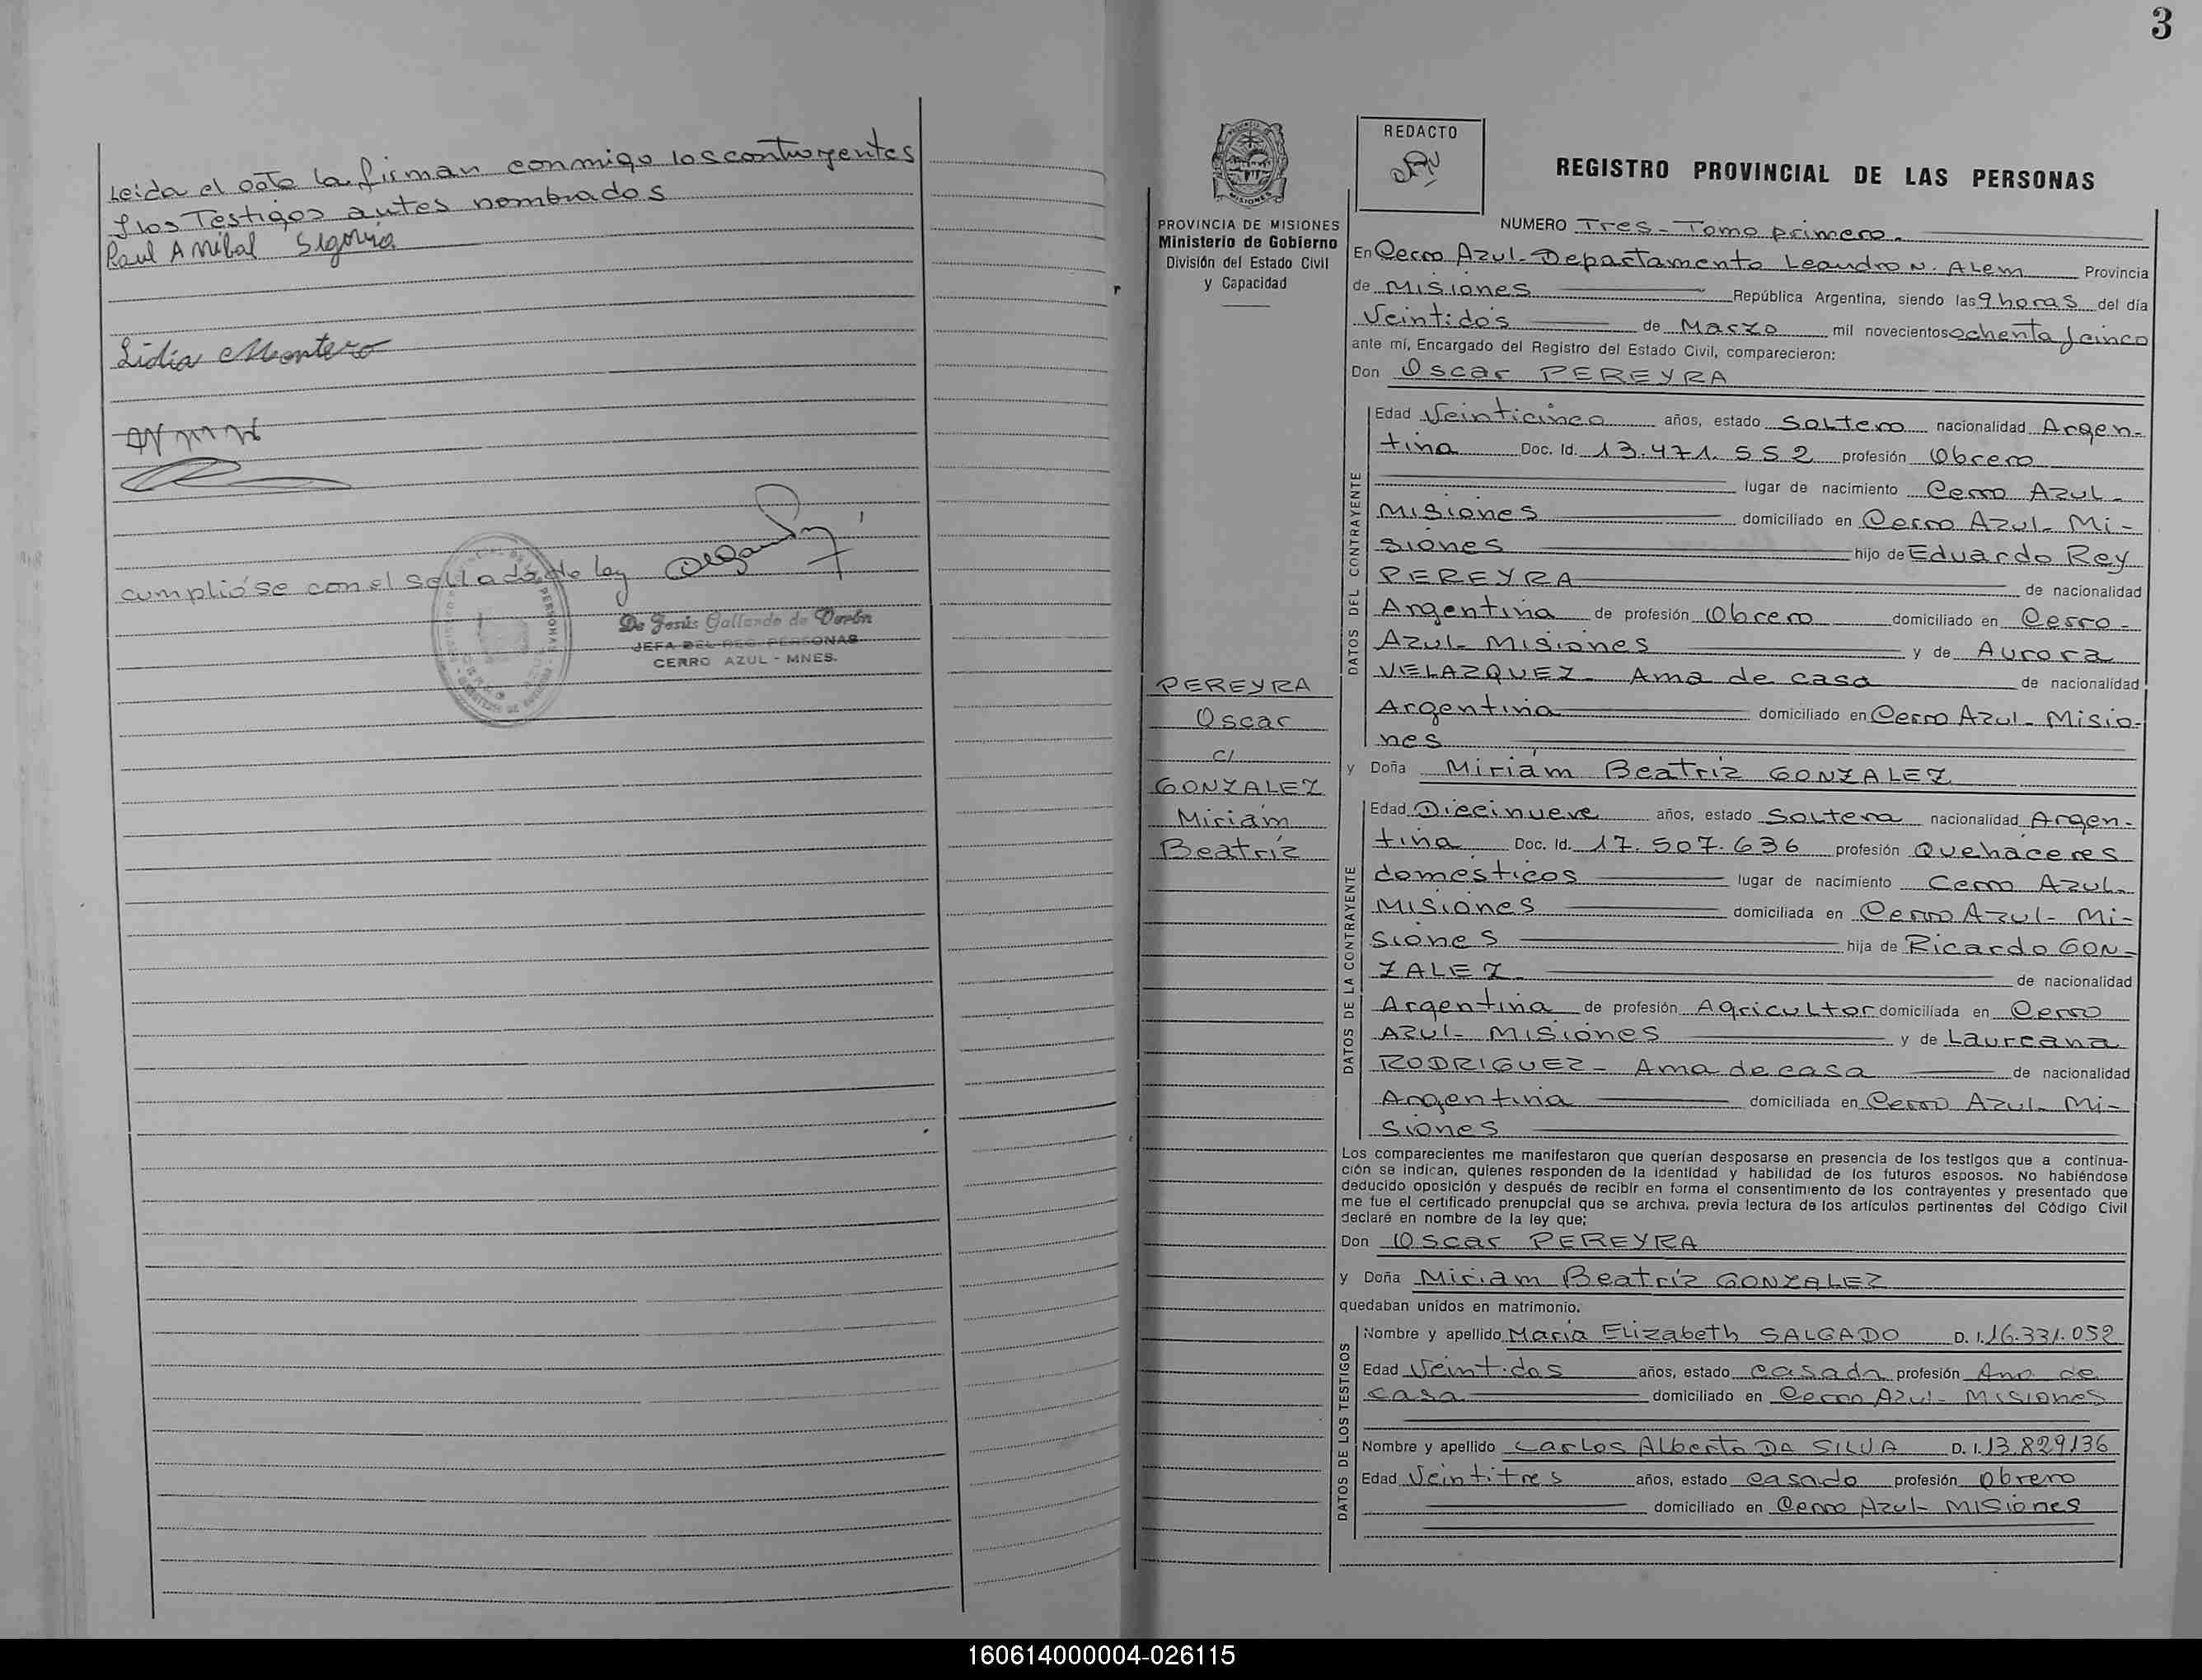 Leida el acta la firman conmigo los contrayentes
y los Testigos antes nombrados
Raul Anibal Segovia
Lidia Montero
cumplióse con el sellado de ley
De Jesús Gallardo de Verón
JEFA DEL REG. PERSONAS
CERRO AZUL - MNES.
3
PROVINCIA DE MISIONES
Ministerio de Gobierno
División del Estado Civil
y Capacidad
PEREYRA
Oscar
c/
GONZALEZ
Miriam
Beatriz
REDACTO
REGISTRO PROVINCIAL DE LAS PERSONAS
NUMERO Tres - Tomo primero.
En Cerro Azul - Departamento Leandro N. Alem Provincia
de Misiones República Argentina, siendo las 9 horas del día
Veintidós de Marzo mil novecientos ochenta y cinco
ante mí, Encargado del Registro del Estado Civil, comparecieron:
Don Oscar PEREYRA
DATOS DEL CONTRAYENTE
Edad Veinticinco años, estado Soltero nacionalidad Argen-
tina Doc. Id. 13.471.552 profesión Obrero
lugar de nacimiento Cerro Azul -
Misiones domiciliado en Cerro Azul - Mi-
siones hijo de Eduardo Rey
PEREYRA de nacionalidad
Argentina de profesión Obrero domiciliado en Cerro -
Azul - Misiones y de Aurora
VELAZQUEZ - Ama de casa de nacionalidad
Argentina domiciliado en Cerro Azul - Misio-
nes
y Doña Miriam Beatriz GONZALEZ
DATOS DE LA CONTRAYENTE
Edad Diecinueve años, estado Soltera nacionalidad Argen-
tina Doc. Id. 17.507.636 profesión Quehaceres
domésticos lugar de nacimiento Cerro Azul -
Misiones domiciliada en Cerro Azul - Mi-
siones hija de Ricardo GON-
ZALEZ de nacionalidad
Argentina de profesión Agricultor domiciliada en Cerro
Azul - Misiones y de Laureana
RODRIGUEZ - Ama de casa de nacionalidad
Argentina domiciliada en Cerro Azul - Mi-
siones
Los comparecientes me manifestaron que querían desposarse en presencia de los testigos que a continua-
ción se indican, quienes responden de la identidad y habilidad de los futuros esposos. No habiéndose
deducido oposición y después de recibir en forma el consentimiento de los contrayentes y presentado que
me fue el certificado prenupcial que se archiva, previa lectura de los artículos pertinentes del Código Civil
declaré en nombre de la ley que;
Don Oscar PEREYRA
y Doña Miriam Beatriz GONZALEZ
quedaban unidos en matrimonio.
DATOS DE LOS TESTIGOS
Nombre y apellido Maria Elizabeth SALGADO D. I. 16.331.052
Edad Veintidos años, estado casada profesión Ama de
casa domiciliado en Cerro Azul - Misiones
Nombre y apellido Carlos Alberto DA SILVA D. I. 13.829136
Edad Veintitres años, estado casado profesión Obrero
domiciliado en Cerro Azul - Misiones
160614000004-026115